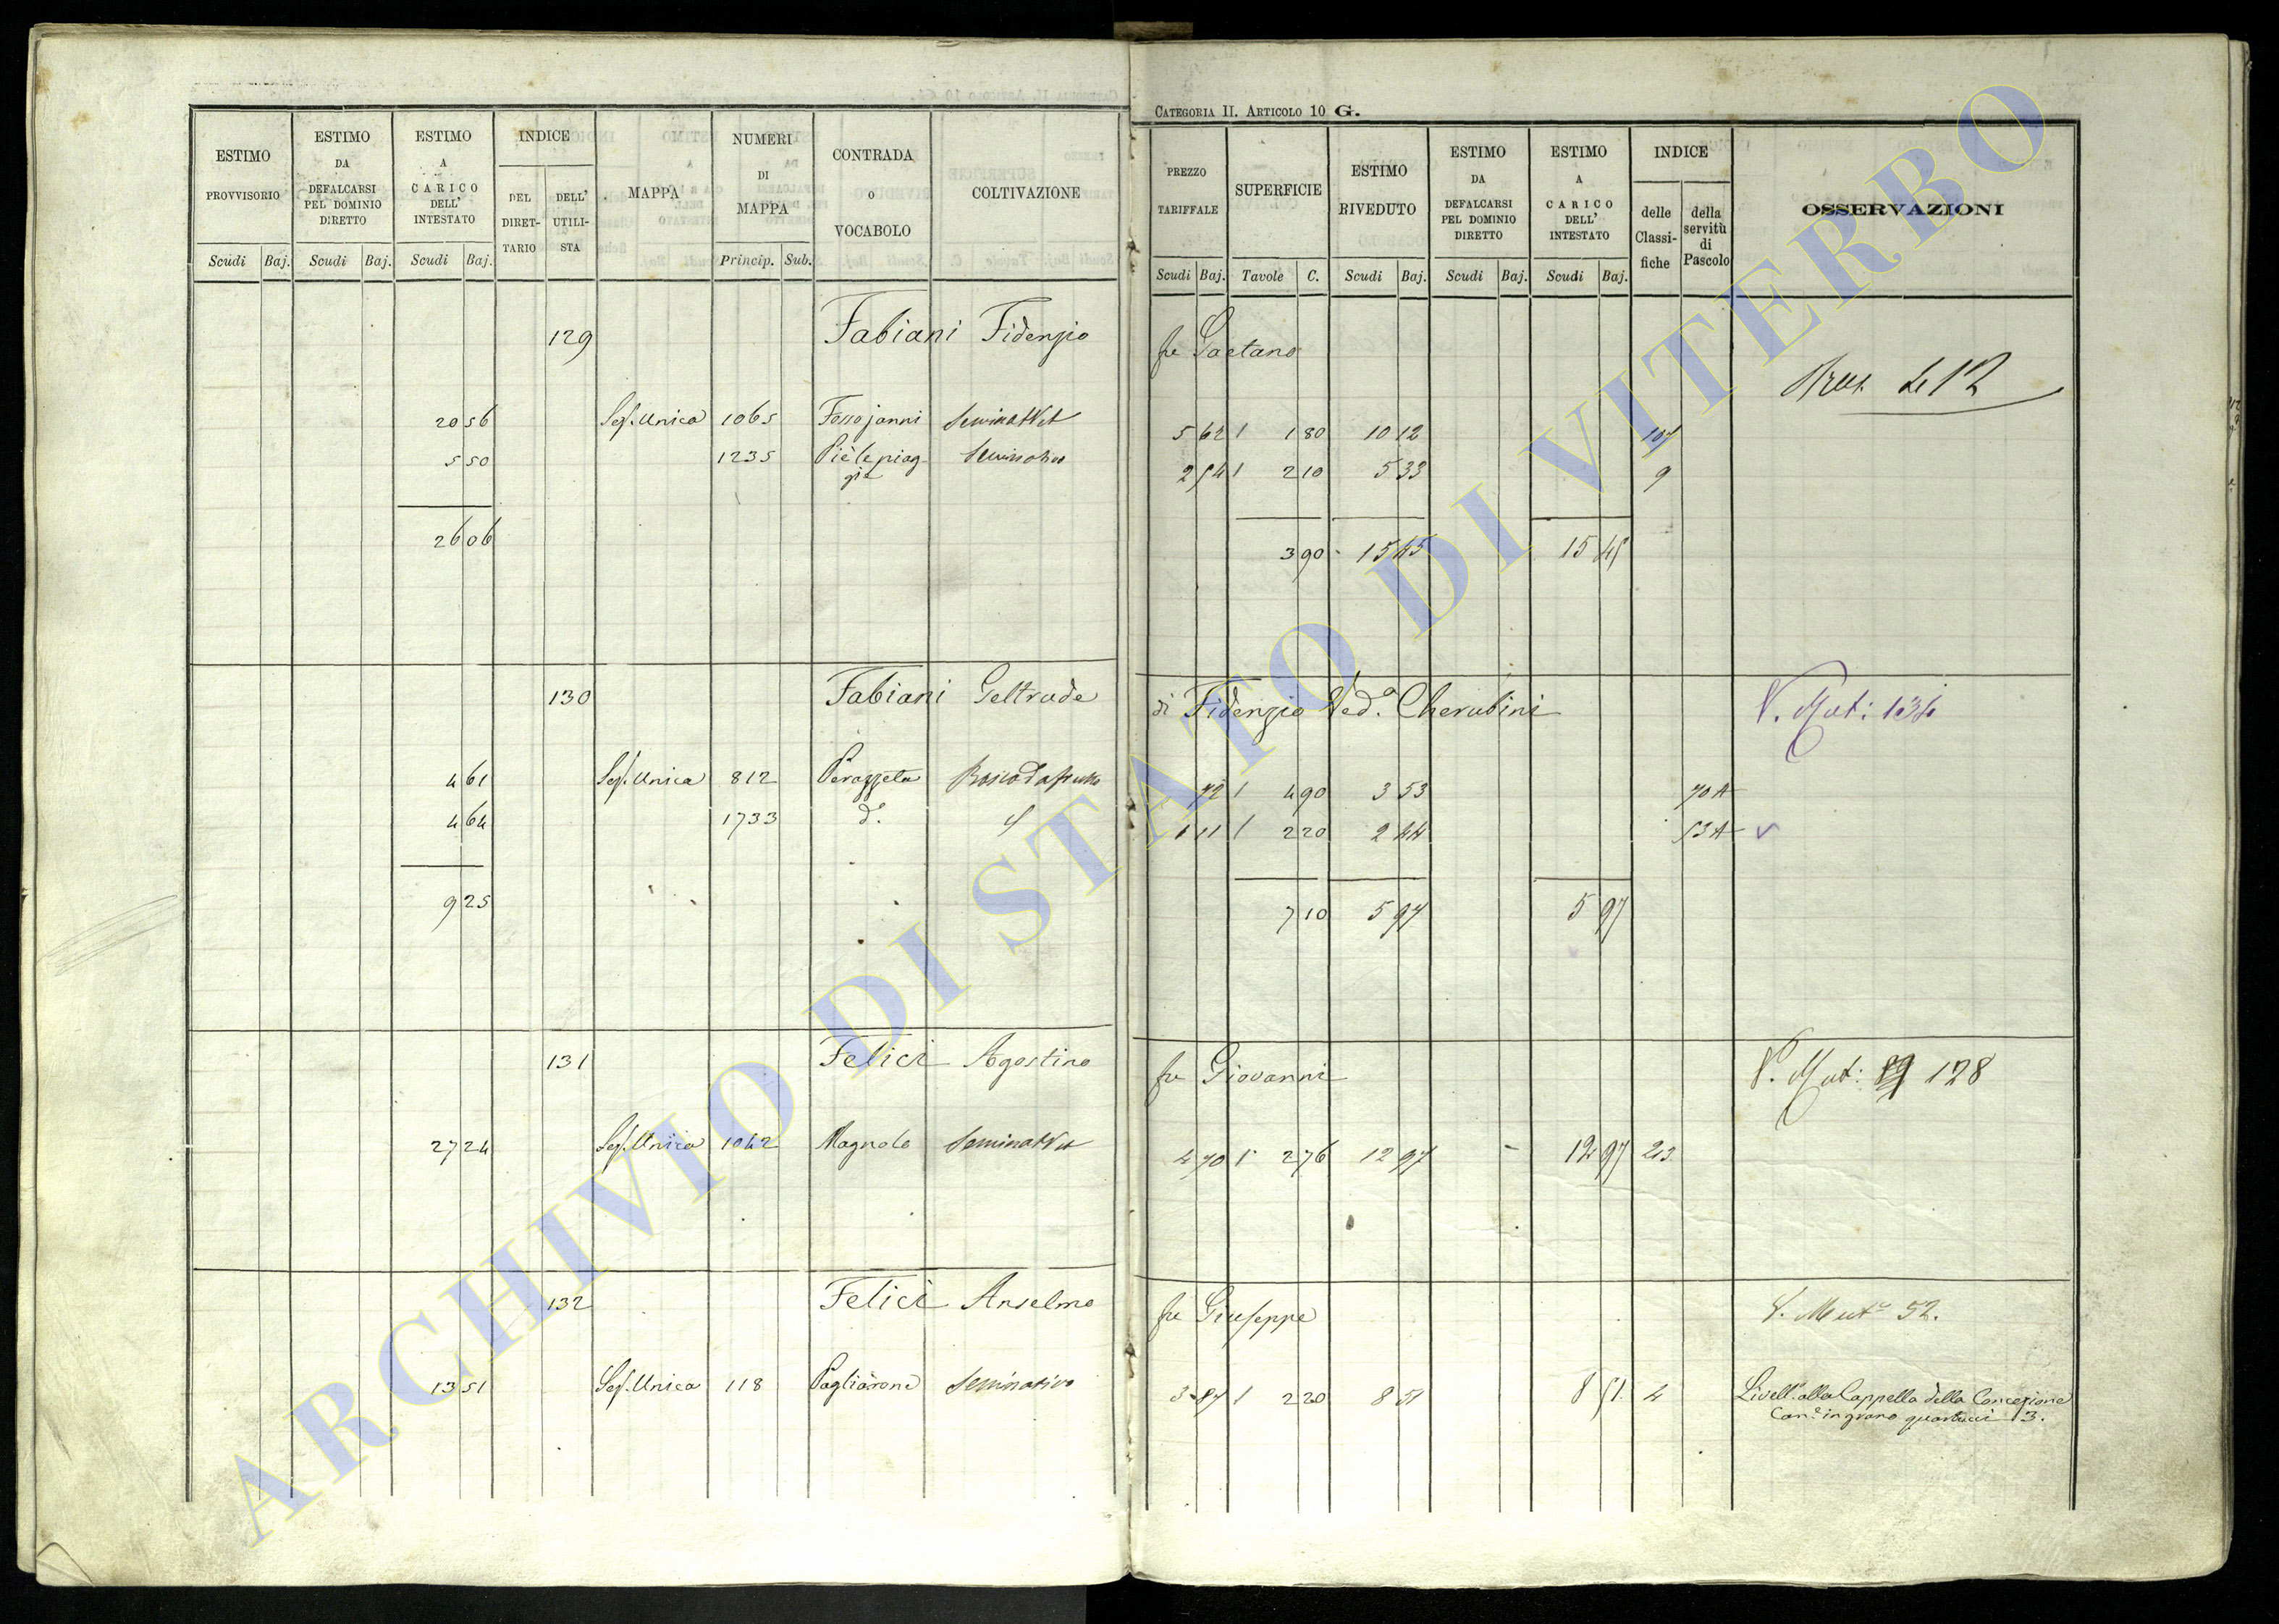 CATEGORIA II. ARTICOLO 10 G.
ESTIMO PROVVISORIO
ESTIMO DA DEFALCARSI PEL DOMINIO DIRETTO
ESTIMO A CARICO DELL' INTESTATO
INDICE
DEL DIRET-TARIO
DELL' UTILI-STA
MAPPA
NUMERI DI MAPPA
CONTRADA o VOCABOLO
COLTIVAZIONE
PREZZO TARIFFALE
SUPERFICIE
ESTIMO RIVEDUTO
ESTIMO DA DEFALCARSI PEL DOMINIO DIRETTO
ESTIMO A CARICO DELL' INTESTATO
INDICE
delle Classi-fiche
della servitù di Pascolo
OSSERVAZIONI
Scudi Baj. Scudi Baj. Scudi Baj. Princip. Sub.
Scudi Baj. Tavole C. Scudi Baj. Scudi Baj. Scudi Baj.
129 Fabiani Fidenzio fu Gaetano
20 56 Sez. Unica 1065 Fossojanni Seminat Vit 5 62 1 80 10 12
5 50 1235 Piè le piag- Seminativo 2 54 2 10 5 33 9
gie
26 06 3 90 15 45 15 45
130 Fabiani Geltrude di Fidenzio Ved.a Cherubini V. Mut: 134
4 61 Sez. Unica 812 Perazzeta Bosco da frutto 72 4 90 3 53 70 A
4 64 1733 d.o 1 11 2 20 2 44 53 A
9 25 7 10 5 97 5 97
131 Felici Agostino fu Giovanni V. Mut: 128
27 24 Sez. Unica 1042 Magnole Seminat Vit 4 70 2 76 12 97 - 12 97 213
132 Felici Anselmo fu Giuseppe V. Mut.e 52.
13 51 Sez. Unica 118 Pagliarone Seminativo 3 87 2 20 8 51 8 51 4 Livell.o alla Cappella della Concezione
Can.e in grano quartucci 13.
ARCHIVIO DI STATO DI VITERBO